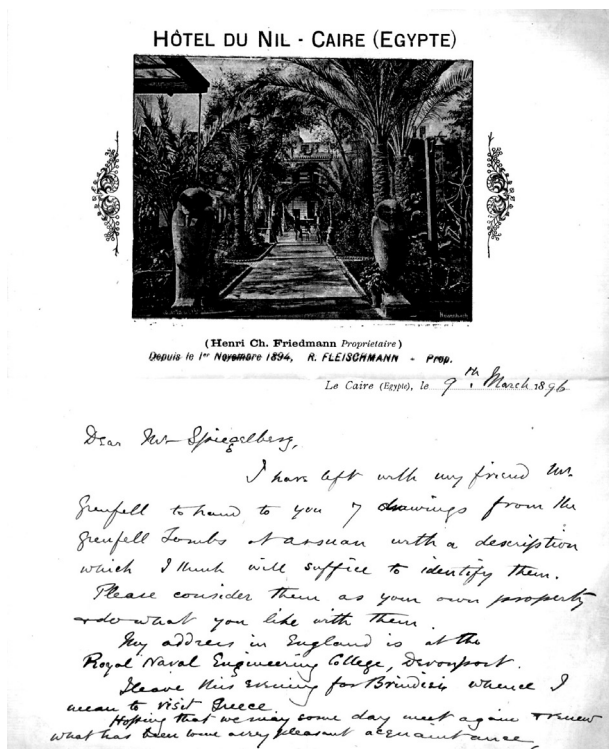 HÔTEL DU NIL - CAIRE (EGYPTE)
(Henri Ch. Friedmann Proprietaire)
Depuis le 1er Novembre 1894, R. FLEISCHMANN - Prop.
Le Caire (Egypte), le 9th March 1896
Dear Mr Spiegelberg,
I have left with my friend Mr.
Grenfell to hand to you 7 drawings from the
Grenfell Tombs at Assuan with a description
which I think will suffice to identify them.
Please consider them as your own property
& do what you like with them.
My address in England is at the
Royal Naval Engineering College, Devonport.
I leave this evening for Brindisi whence I
mean to visit Greece.
Hoping that we may some day meet again & renew
what has been to me a very pleasant acquaintance